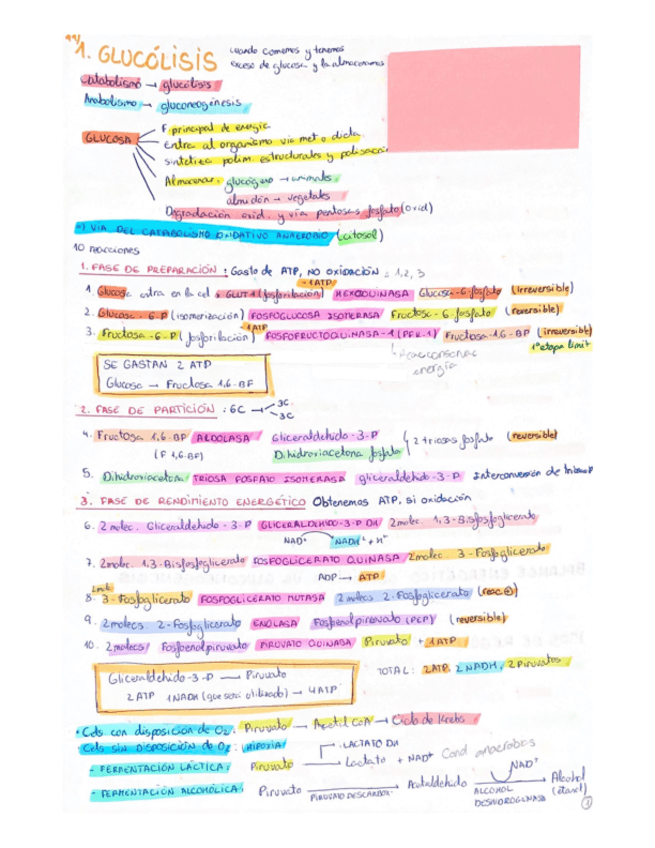 1. GLUCÓLISIS
cuando comemos y tenemos
exceso de glucosa y la almacenamos
Catabolismo → glucólisis
Anabolismo → gluconeogénesis
GLUCOSA
F. principal de energía
entra al organismo vía met o dieta
sintetiza polim. estructurales y
Almacenar. glucógeno → animales
almidón → vegetales
Degradación oxid. y vía pentosas fosfato (oxid)
VIA DEL CATABOLISMO OXIDATIVO ANAEROBIO (citosol)
10 reacciones
1. FASE DE PREPARACIÓN: Gasto de ATP, NO oxidación: 1,2,3
-1ATP
1. Glucosa entra en la cel x GLUT1 (fosforilación) HEXOQUINASA Glucosa-6-fosfato (irreversible)
2. Glucosa-6-P (isomerización) FOSFOGLUCOSA ISOMERASA Fructosa-6-fosfato (reversible)
-1ATP
3. Fructosa-6-P (fosforilación) FOSFOFRUCTOQUINASA-1 (PFK-1) Fructosa-1,6-BP (irreversible)
1ª etapa limit
energía
SE GASTAN 2 ATP
Glucosa → Fructosa 1,6-BF
2. FASE DE PARTICIÓN: 6C → 3C
3C
4. Fructosa 1,6-BP ALDOLASA Gliceraldehído-3-P
(F 1,6-BP) Dihidroxiacetona fosfato
2 triosas fosfato (reversible)
5. Dihidroxiacetona TRIOSA FOSFATO ISOMERASA gliceraldehído-3-P Interconversión de triosas P
3. FASE DE RENDIMIENTO ENERGÉTICO Obtenemos ATP, si oxidación
6. 2 molec. Gliceraldehído-3-P GLICERALDEHIDO-3-P DH 2molec. 1,3-Bisfosfoglicerato
NAD⁺ NADH + H⁺
7. 2molec. 1,3-Bisfosfoglicerato FOSFOGLICERATO QUINASA 2molec. 3-Fosfoglicerato
ADP → ATP
2molc
8. 3-Fosfoglicerato FOSFOGLICERATO MUTASA 2molecs 2-Fosfoglicerato
9. 2molecs 2-Fosfoglicerato ENOLASA Fosfoenolpiruvato (PEP) (reversible)
10. 2molecs Fosfoenolpiruvato PIRUVATO QUINASA Piruvato + 1ATP
Gliceraldehído-3-P → Piruvato
2ATP 1NADH (que será utilizado) → 4ATP
TOTAL: 2ATP, 2NADH, 2Piruvatos
• Cels con disposición de O₂: Piruvato → Acetil CoA → Ciclo de Krebs
• Cels sin disposición de O₂: HIPOXIA
LACTATO DH
- FERMENTACIÓN LÁCTICA: Piruvato → Lactato + NAD⁺ Cond anaerobias
- FERMENTACIÓN ALCOHÓLICA: Piruvato → Acetaldehído → Alcohol
NAD⁺
PIRUVATO DESCARBOX. ALCOHOL (etanol)
DESHIDROGENASA
1